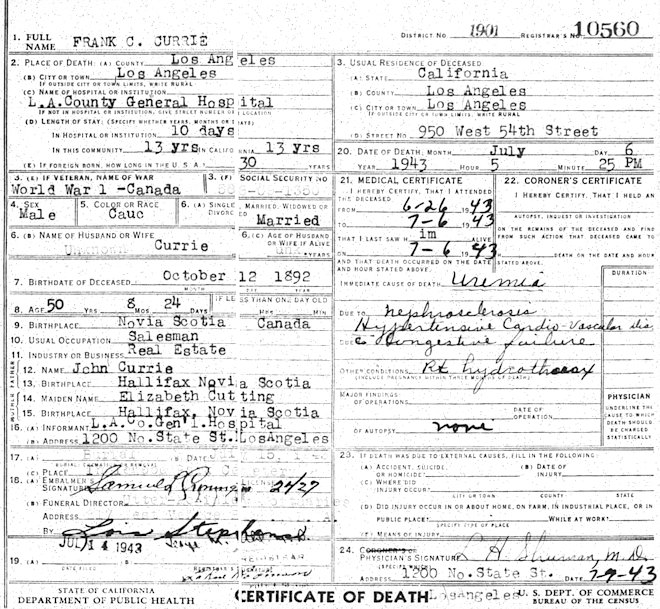 DISTRICT NO. 1901 REGISTRAR'S NO. 10560
1. FULL NAME FRANK C. CURRIE
2. PLACE OF DEATH: (A) COUNTY Los Angeles
(B) CITY OR TOWN Los Angeles
IF OUTSIDE CITY OR TOWN LIMITS, WRITE RURAL
(C) NAME OF HOSPITAL OR INSTITUTION:
L.A.County General Hospital
IF NOT IN HOSPITAL OR INSTITUTION, GIVE STREET NUMBER OR LOCATION
(D) LENGTH OF STAY: (SPECIFY WHETHER YEARS, MONTHS OR DAYS)
IN HOSPITAL OR INSTITUTION 10 days
IN THIS COMMUNITY 13 yrs IN CALIFORNIA 13 yrs
(E) IF FOREIGN BORN, HOW LONG IN THE U. S. A.? 30 YEARS
3. USUAL RESIDENCE OF DECEASED
(A) STATE California
(B) COUNTY Los Angeles
(C) CITY OR TOWN Los Angeles
IF OUTSIDE CITY OR TOWN LIMITS, WRITE RURAL
(D) STREET NO. 950 West 54th Street
3. (E) IF VETERAN, NAME OF WAR
World War 1 -Canada
3. (F) SOCIAL SECURITY NO
4. SEX Male
5. COLOR OR RACE Cauc
6. (A) SINGLE, MARRIED, WIDOWED OR DIVORCED Married
6. (B) NAME OF HUSBAND OR WIFE
Currie
6. (C) AGE OF HUSBAND OR WIFE
7. BIRTHDATE OF DECEASED October 12 1892
MONTH
8. AGE 50 YRS. 8 MOS. 24 DAYS IF LESS THAN ONE DAY OLD
9. BIRTHPLACE Novia Scotia Canada
10. USUAL OCCUPATION Salesman
11. INDUSTRY OR BUSINESS Real Estate
FATHER
12. NAME John Currie
13. BIRTHPLACE Hallifax Novia Scotia
MOTHER
14. MAIDEN NAME Elizabeth Cutting
15. BIRTHPLACE Hallifax, Novia Scotia
16. (A) INFORMANT L.A.Co.Gen'l.Hospital
(B) ADDRESS 1200 No.State St.LosAngeles
17. (B) DATE
(C) PLACE
18. (A) EMBALMER'S SIGNATURE 2427
(B) FUNERAL DIRECTOR
ADDRESS
BY
19. JUL 14 1943
DATE FILED REGISTRAR
20. DATE OF DEATH: MONTH July DAY 6
YEAR 1943 HOUR 5 MINUTE 25 PM
21. MEDICAL CERTIFICATE
I HEREBY CERTIFY, THAT I ATTENDED THE DECEASED
FROM 6-26 1943
TO 7-6 1943
THAT I LAST SAW H im ALIVE
ON 7-6 1943
AND THAT DEATH OCCURRED ON THE DATE AND HOUR STATED ABOVE.
22. CORONER'S CERTIFICATE
I HEREBY CERTIFY, THAT I HELD AN
AUTOPSY, INQUEST OR INVESTIGATION
ON THE REMAINS OF THE DECEASED AND FIND FROM SUCH ACTION THAT DECEASED CAME TO
DEATH ON THE DATE AND HOUR STATED ABOVE.
DURATION
IMMEDIATE CAUSE OF DEATH Uremia
DUE TO nephrosclerosis
Hypertensive Cardio-Vascular dis
congestive failure
OTHER CONDITIONS Rt hydrothorax
(INCLUDE PREGNANCY WITHIN THREE MONTHS OF DEATH)
MAJOR FINDINGS
OF OPERATIONS
DATE OF OPERATION
OF AUTOPSY none
PHYSICIAN
UNDERLINE THE CAUSE TO WHICH DEATH SHOULD BE CHARGED STATISTICALLY
23. IF DEATH WAS DUE TO EXTERNAL CAUSES, FILL IN THE FOLLOWING:
(A) ACCIDENT, SUICIDE, OR HOMICIDE? (B) DATE OF INJURY
(C) WHERE DID INJURY OCCUR?
CITY OR TOWN COUNTY STATE
(D) DID INJURY OCCUR IN OR ABOUT HOME, ON FARM, IN INDUSTRIAL PLACE, OR IN
PUBLIC PLACE? WHILE AT WORK?
SPECIFY TYPE OF PLACE
(E) MEANS OF INJURY
24. CORONER'S OR
PHYSICIAN'S SIGNATURE M.D.
ADDRESS 1200 No.State St. DATE 7-9-43
Los Angeles
STATE OF CALIFORNIA
DEPARTMENT OF PUBLIC HEALTH
CERTIFICATE OF DEATH
U. S. DEPT. OF COMMERCE
BUREAU OF THE CENSUS